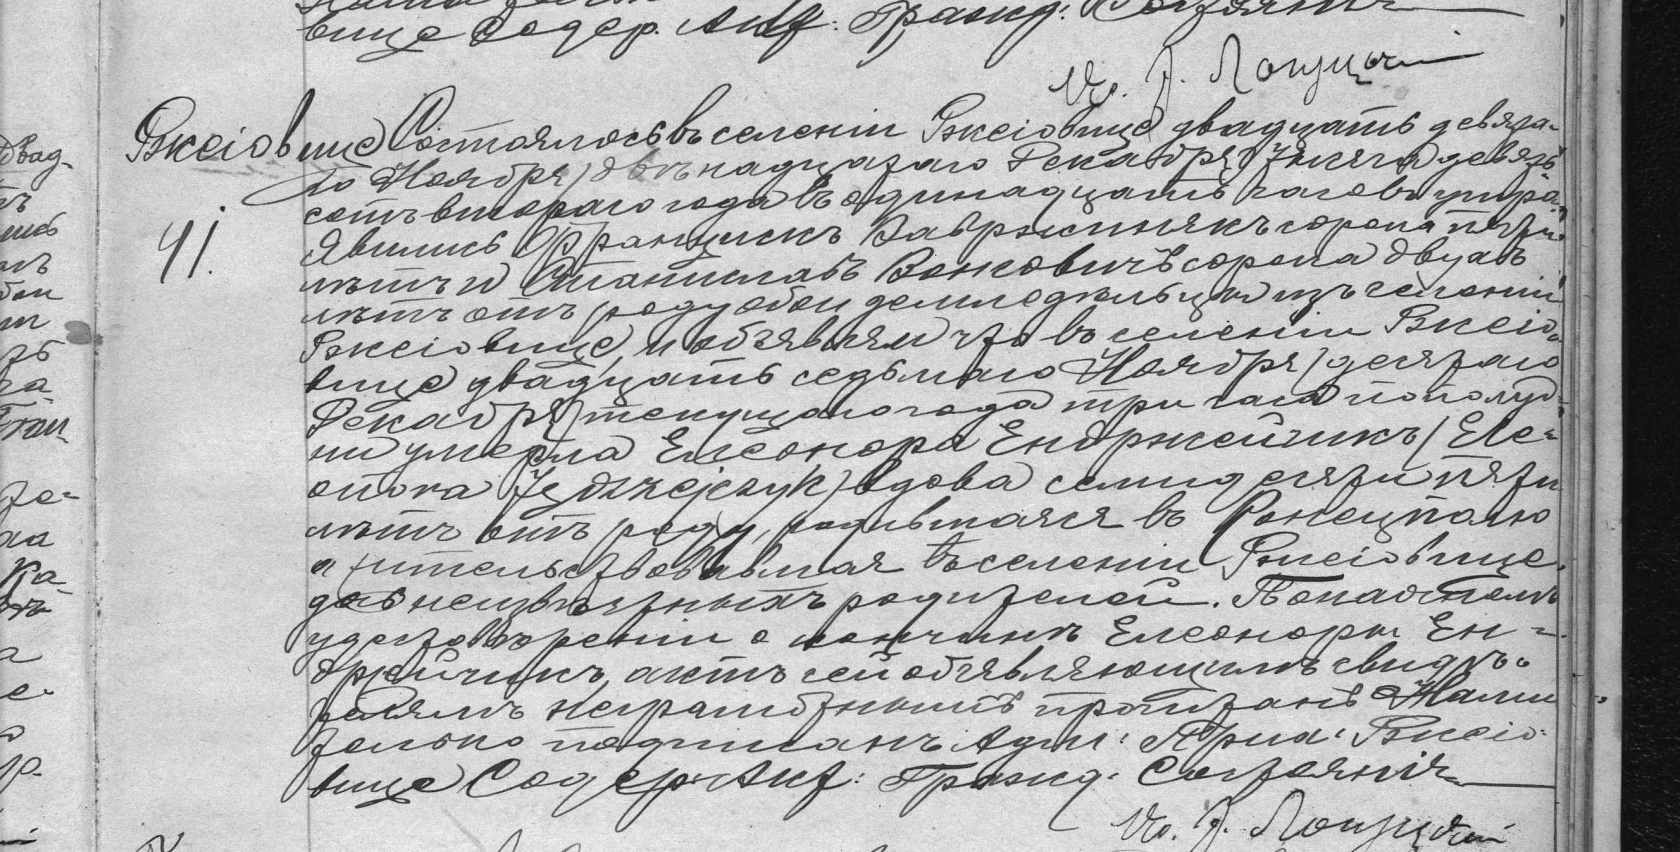 вице Содер. Акт. Гражд. Состоянія
Кс.
Ржсіовице Состоялось въ селеніи Ржсіовице двадцать девята-
41.
го Ноября / двѣнадцатаго Декабря / тысяча девять
сотъ втораго года въ одинадцать часовъ утра.
Явились Францискъ Вавржинякъ сорока пяти
лѣтъ и Станиславъ Вонсовичъ сорока двухъ
лѣтъ отъ роду оба земледѣльцы изъ селенія
Ржсіовице, и объявили что въ селеніи Ржсіо-
вице двадцать седьмаго Ноября / десятаго
Декабря / текущаго года три часа по полуд-
ни умерла Елеонора Ендржейчикъ / Eleo-
onora Jędrzejczyk / вдова семидесяти пяти
лѣтъ отъ роду, родившаяся въ Конецполю
а жительствовавшая въ селеніи Ржсіовице,
дочь неизвѣстныхъ родителей. По настоящемъ
удостовѣреніи о кончинѣ Елеоноры Ен-
држейчикъ, актъ сей объявляющимъ свидѣ-
телямъ неграмотнымъ прочитанъ Нами
только подписанъ. Адм. Прих. Ржсіо-
вице Содер. Акт. Гражд. Состоянія
Кс.